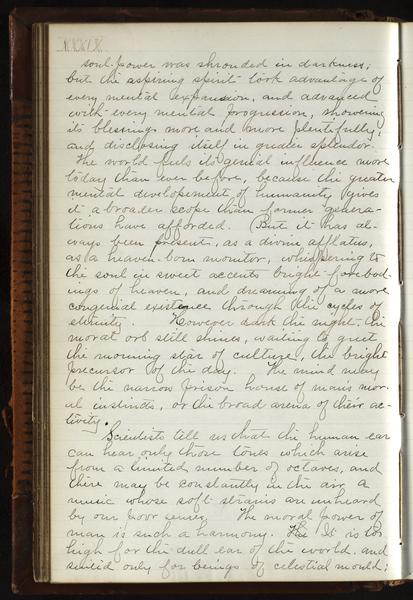 soul-power was shrouded in darkness;
but the aspiring spirit took advantage of
every mental expansion, and advanced
with every mental progression, showering
its blessings more and more plentifully,
and disclosing itself in greater splendor.
The world feels its genial influence more
today than ever before, because the greater
mental developement of humanity gives
it a broader scope than former genera-
tions have afforded. (But it has al-
ways been present, as a divine afflatus,
as a heaven-born monitor, whispering to
the soul in sweet accents bright forebod-
ings of heaven, and dreaming of a more
congenial existence through the cycles of
eternity. However dark the night, the
moral orb still shines, waiting to greet
the morning star of culture, the bright
precursor of the day. The mind may
be the narrow prison house of man's mor-
al instincts, or the broad arena of their ac-
tivity.
Scientists tell us that the human ear
can hear only those tones which arise
from a limited number of octaves, and
there may be constantly in the air a
music whose soft strains are unheard
by our poor senses. The moral power of
man is such a harmony. The It is too
high for the dull ear of the world, and
suited only for beings of celestial mould;